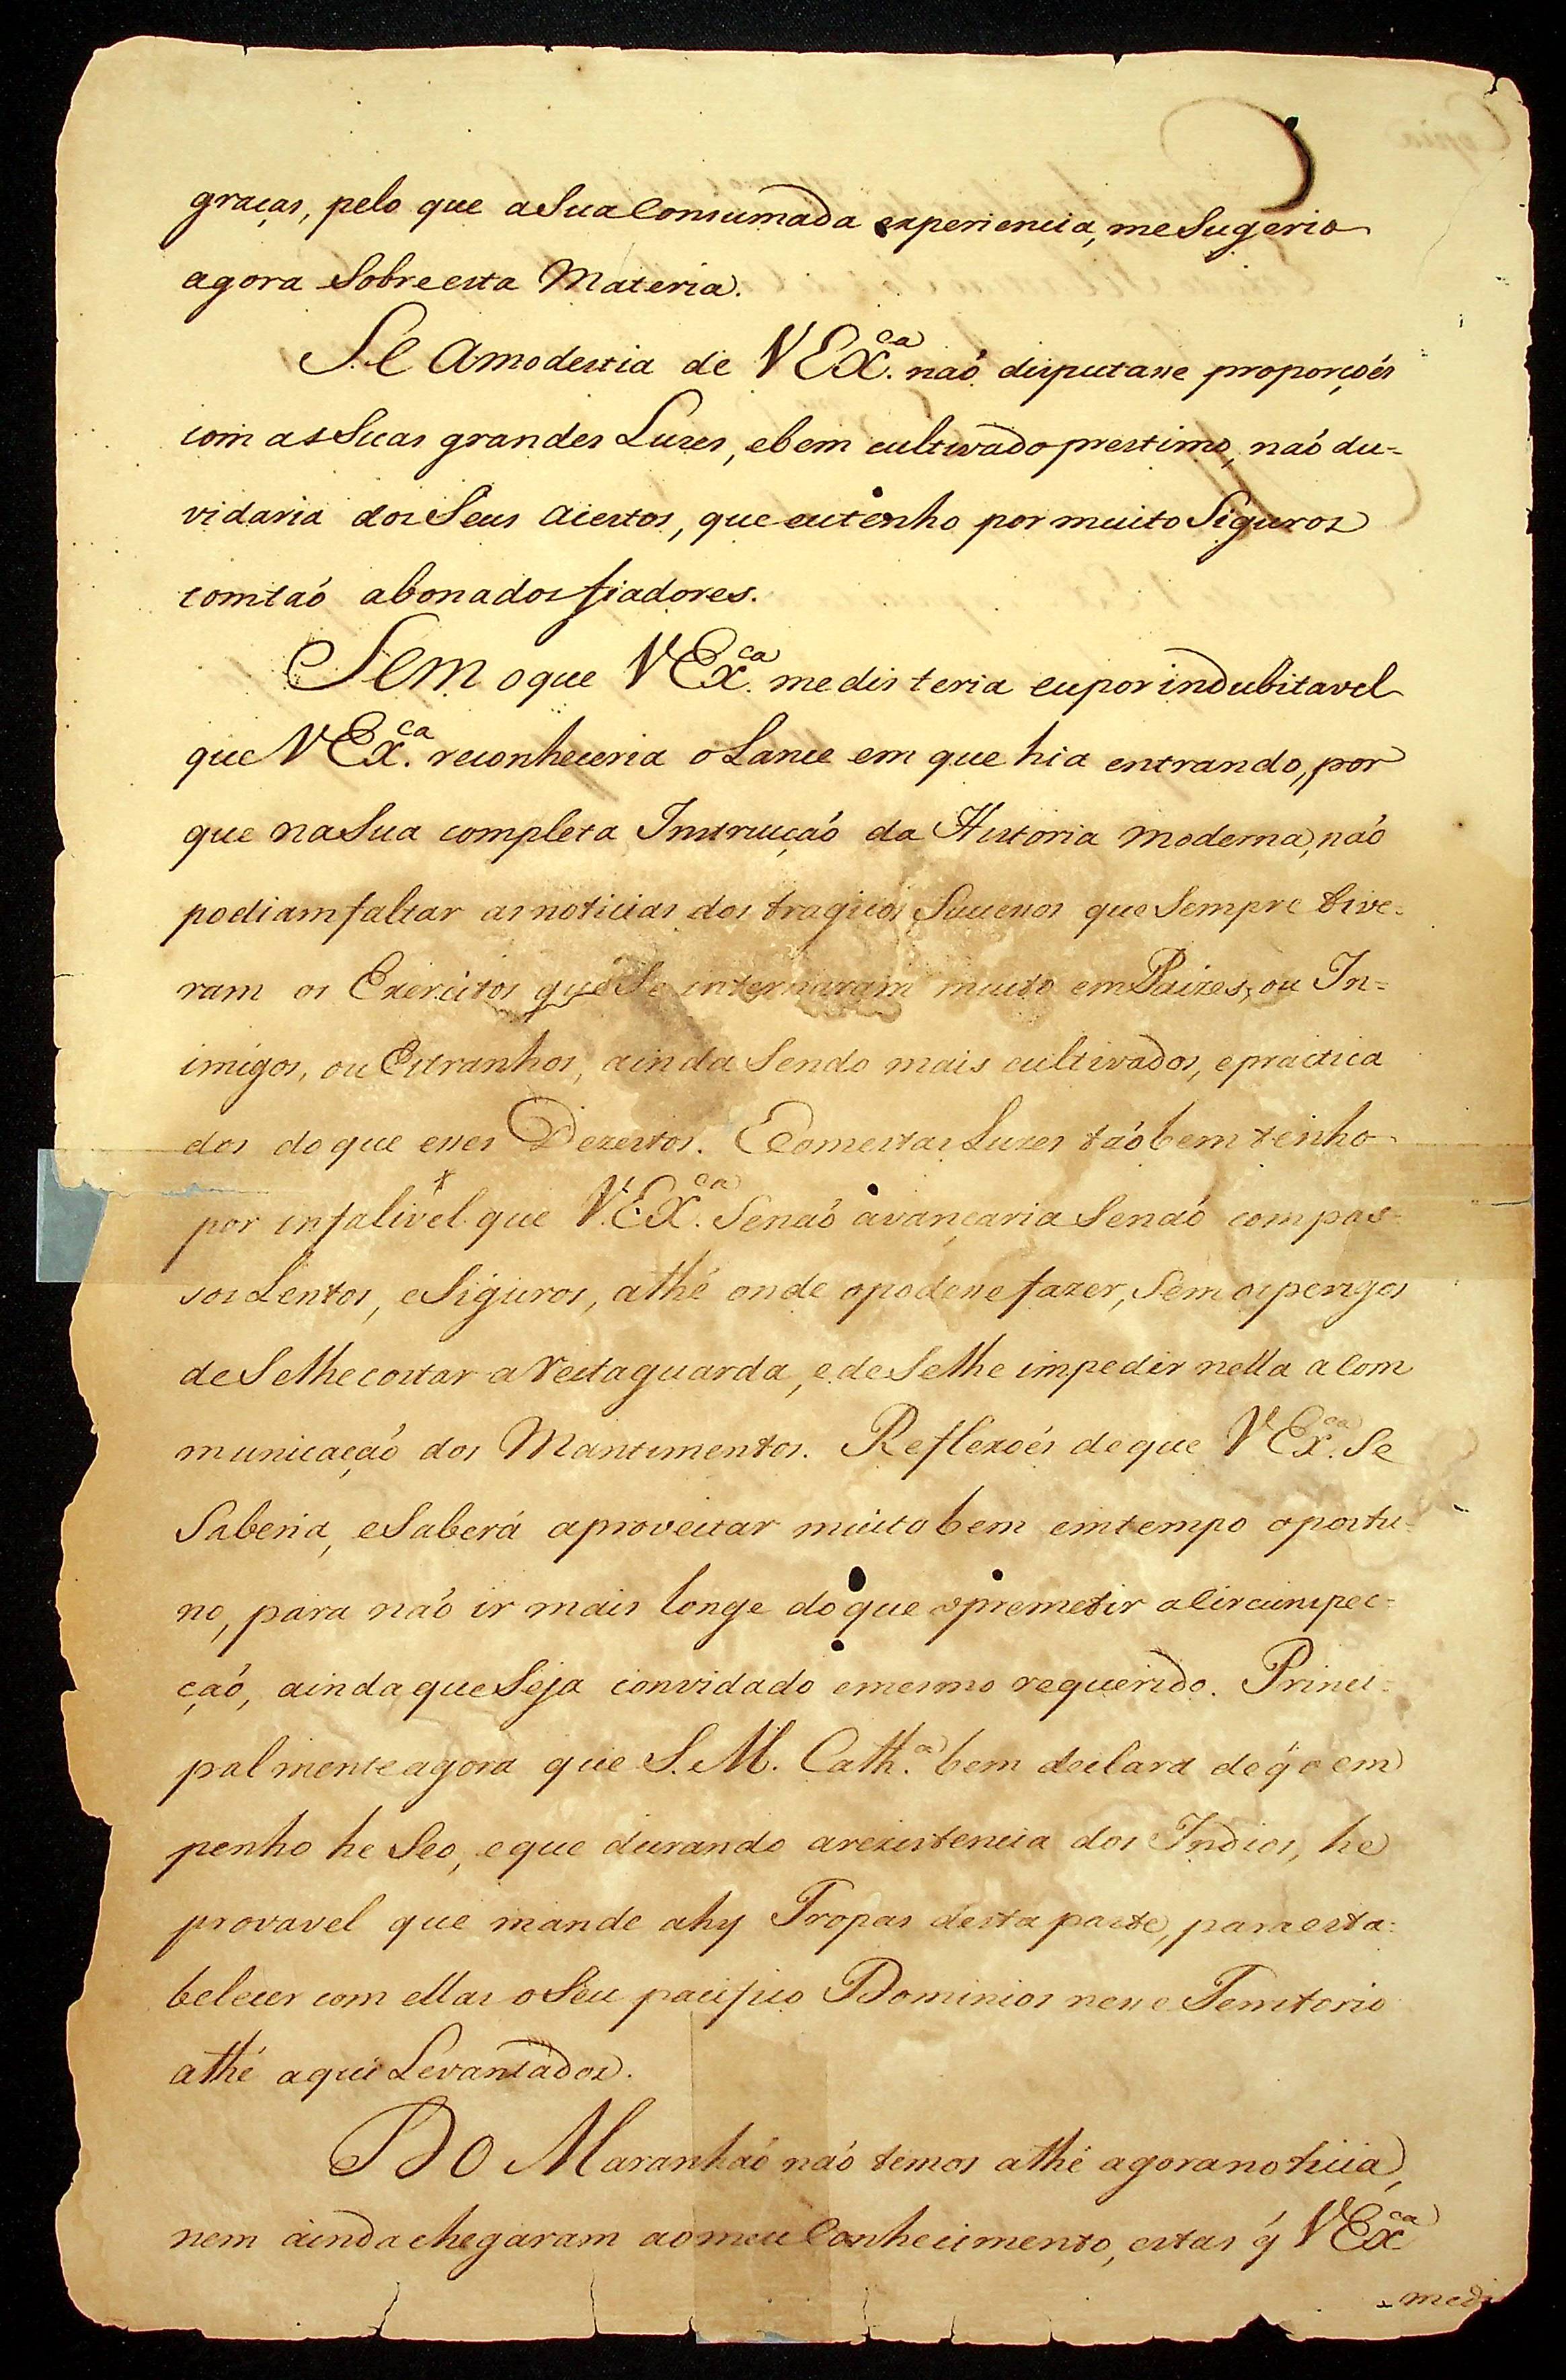 graças, pelo que a Sua Consumada experiencia, me Sugerio
agora Sobre esta Materia.
Se a modestia de V Ex.ca naó disputasse proporçoés
com as Suas grandes Luzes, e bem cultivado prestimo, naó du=
vidaria dos Seus acertos, que eu tenho por muito Siguros
com taó abonados fiadores.
Sem o que V Ex.ca me dis teria eu por indubitavel
que V Ex.ca reconheceria o Lance em que hia entrando, por
que na Sua completa Instrucçaó da Historia moderna, naó
podiam faltar as noticias dos tragicos Sucessos que Sempre tive=
ram os Exercitos que Se internaram muito em Paizes, ou In=
imigos, ou Estranhos, ainda Sendo mais cultivados, e practica
dos do que esses Dezertos. E com estas Luzes taó bem tenho
por infalivel que V. Ex.ca Senaó avançaria Senaó com pas=
sos Lentos, e Siguros, athé onde o podesse fazer, Sem os perigos
de Se lhe cortar a Rectaguarda, e de Se lhe impedir nella a Com
municaçaó dos Mantimentos. Reflexoés de que V Ex.ca Se
Saberia, e Saberá aproveitar muito bem em tempo oportu=
no, para naó ir mais longe do que o premetir a Circunspec=
çaó, ainda que Seja convidado e mesmo requerido. Princi=
palmente agora que S. M. Cath.a bem declara de q̃ o em
penho he Seo, e que durando a rezistencia dos Indios, he
provavel que mande ahy Tropas desta parte, para esta=
belecer com ellas o Seu pacifico Dominios nesse Territorio
athé aqui Levantados.
Do Maranhaó naó temos athé agora noticia,
nem ainda chegaram ao meu Conhecimento, estas q̃ V Ex.ca
medi